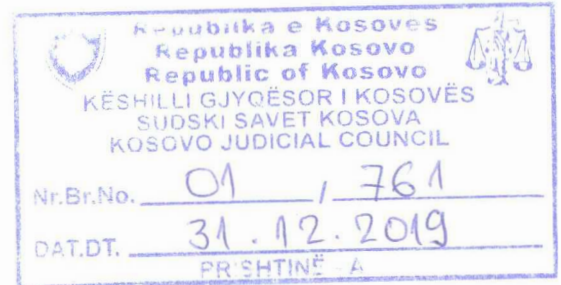 Republika e Kosovës
Republika Kosovo
Republic of Kosovo
KËSHILLI GJYQËSOR I KOSOVËS
SUDSKI SAVET KOSOVA
KOSOVO JUDICIAL COUNCIL
Nr.Br.No. 01 / 761
DAT.DT. 31.12.2019
PRISHTINË - A